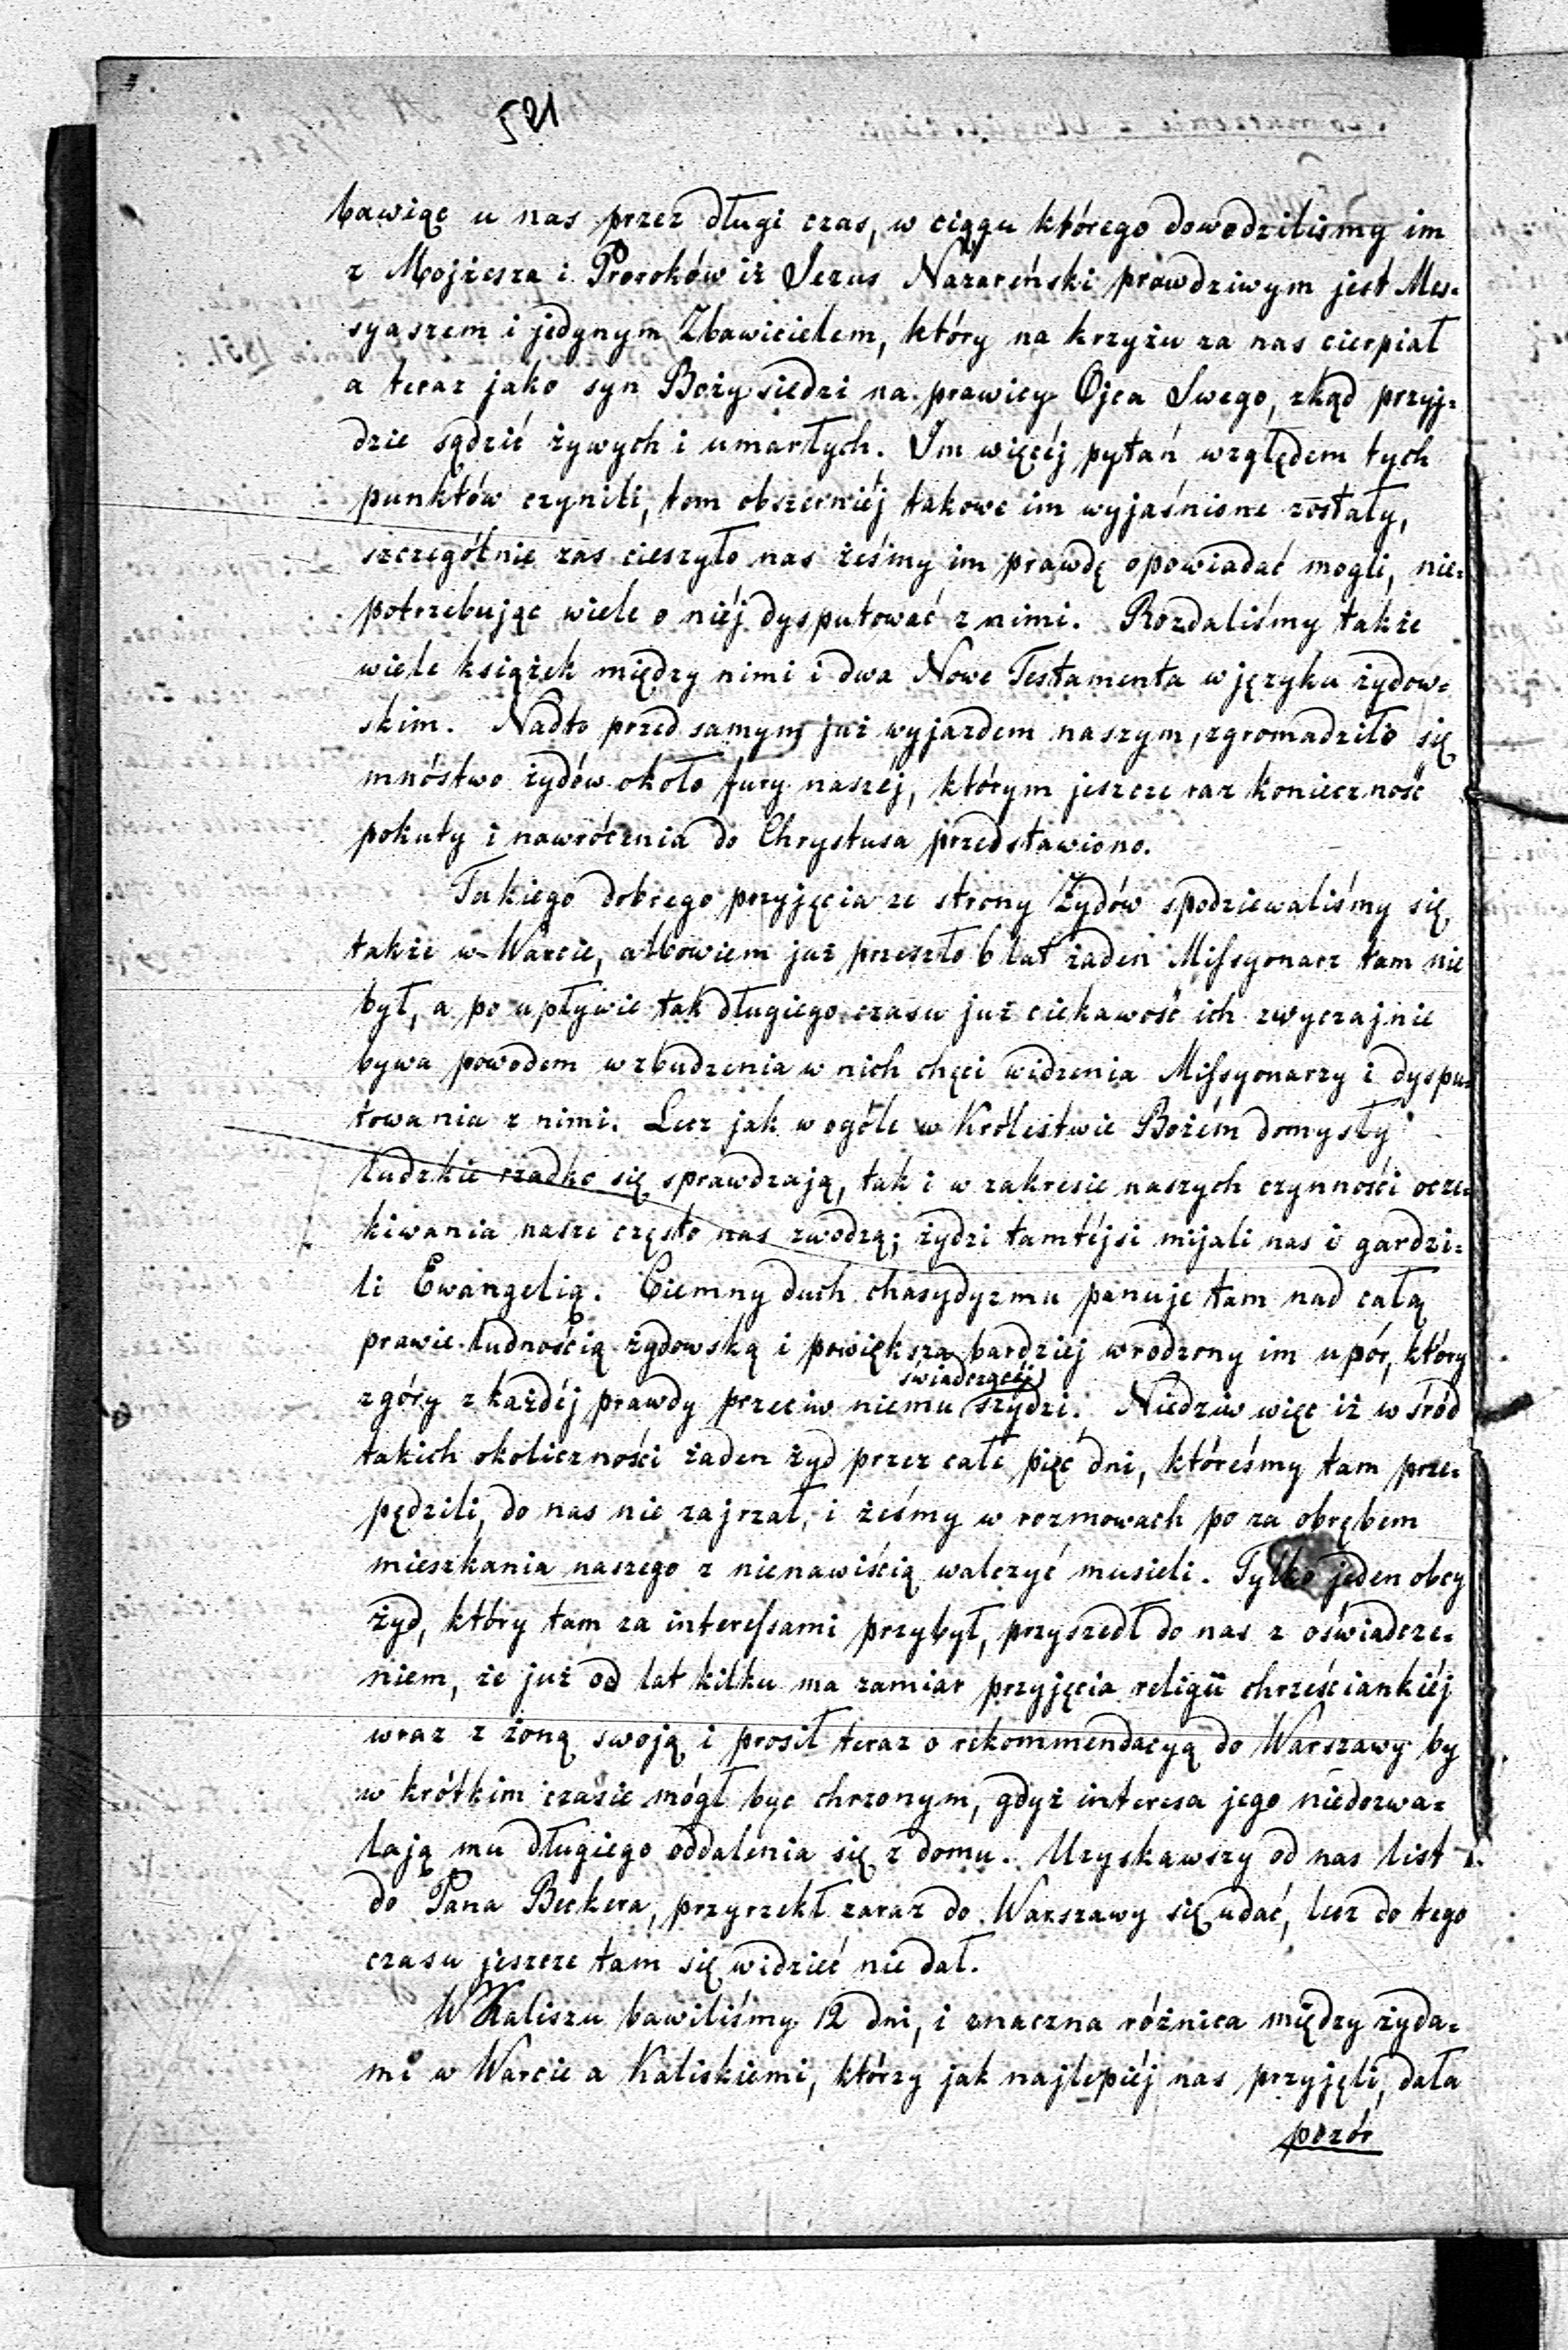 521
bawiąc u nas przez długi czas, w ciągu którego dowodziliśmy im
z Mojżesza i Proroków iż Jezus Nazareński prawdziwym jest Mes=
syaszem i jedynym Zbawicielem, który na krzyżu za nas cierpiał
a teraz jako syn Boży siedzi na prawicy Ojca Swego, zkąd przyj=
dzie sądzić żywych i umarłych. Im więcéj pytań względem tych
punktów czynili, tem obszerniéj takowe im wyjaśnione zostały,
szczególnie zaś cieszyło nas żeśmy im prawdę opowiadać mogli, nie=
potrzebując wiele o niéj dysputować z nimi. Rozdaliśmy także
wiele książek między nimi i dwa Nowe Testamenta w języku żydow=
skim. Nadto przed samym już wyjazdem naszym, zgromadziło się
mnóstwo żydów około fury naszéj, którym jeszcze raz konieczność
pokuty i nawrócenia do Chrystusa przedstawiono.
Takiego dobrego przyjęcia ze strony Żydów spodziewaliśmy się
także w Warcie, albowiem już przeszło 6 lat żaden Missyonarz tam nie
był, a po upływie tak długiego czasu już ciekawość ich zwyczajnie
bywa powodem wzbudzenia w nich chęci widzenia Missyonarzy i dyspu=
towania z nimi. Lecz jak w ogóle w Królestwie Bożém domysły
ludzkie rzadko się sprawdzają, tak i w zakresie naszych czynności ocze=
kiwania nasze często nas zwodzą; żydzi tamtéjsi mijali nas i gardzi=
li Ewangelią. Ciemny duch chasydyzmu panuje tam nad całą
prawie ludnością żydowską i powiększa bardziéj wrodzony im upór, który
świadczącéj
zgóry z każdéj prawdy przeciw niemu szydzi. Niedziw więc iż wśród
takich okoliczności żaden żyd przez całe pięć dni, któreśmy tam prze=
pędzili, do nas nie zajrzał, i żeśmy w rozmowach po za obrębem
mieszkania naszego z nienawiścią walczyć musieli. Tylko jeden obcy
żyd, który tam za interessami przybył, przyszedł do nas z oświadcze=
niem, że już od lat kilku ma zamiar przyjęcia religii chrześciankiéj
wraz z żoną swoją i prosił teraz o rekommendacyą do Warszawy by
w krótkim czasie mógł być chrzonym, gdyż interesa jego niedozwa=
lają mu długiego oddalenia się z domu. Uzyskawszy od nas list
do Pana Beckera, przyrzekł zaraz do Warszawy się udać, lecz do tego
czasu jeszcze tam się widzieć nie dał.
W Kaliszu bawiliśmy 12 dni, i znaczna różnica między żyda=
mi w Warcie a Kaliskiemi, którzy jak najlepiéj nas przyjęli, dała
pozór